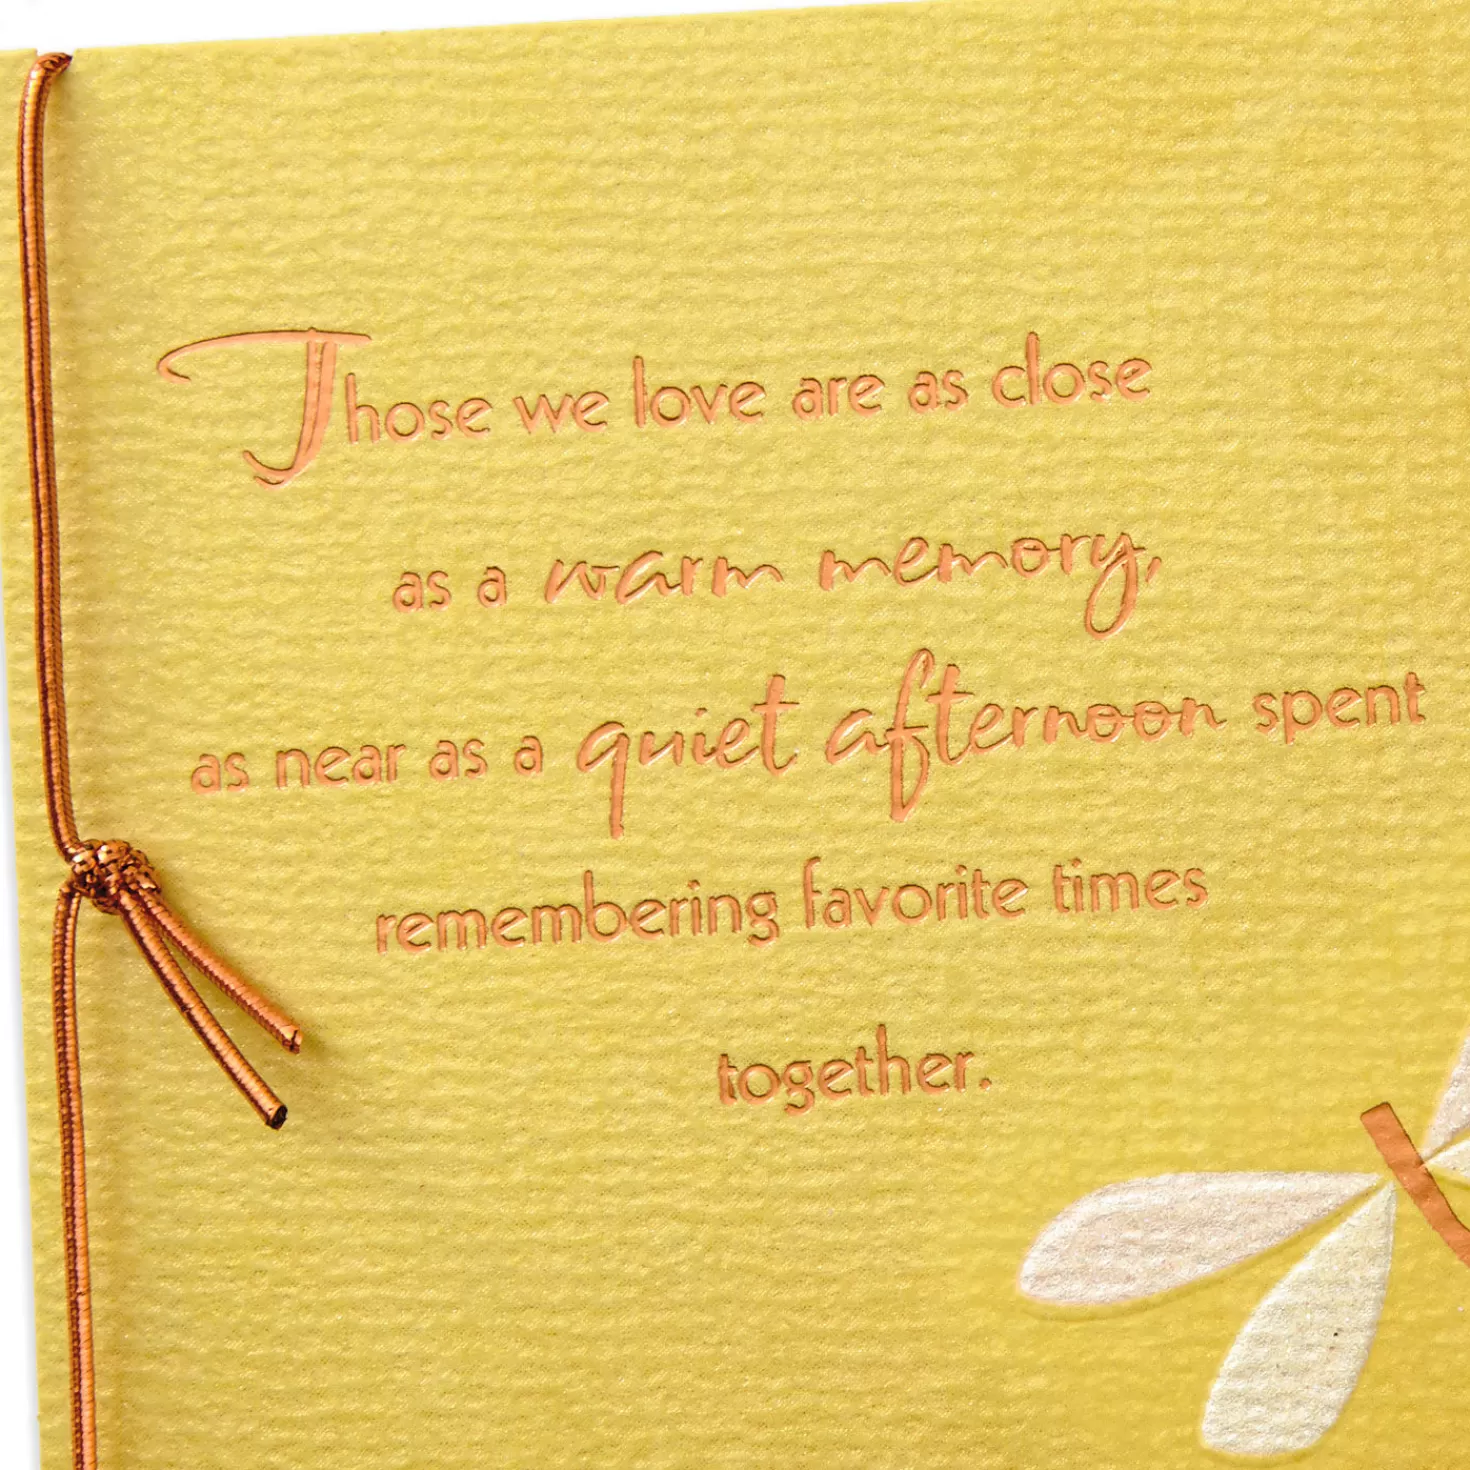 Those we love are as close
as a warm memory,
as near as a quiet afternoon spent
remembering favorite times
together.